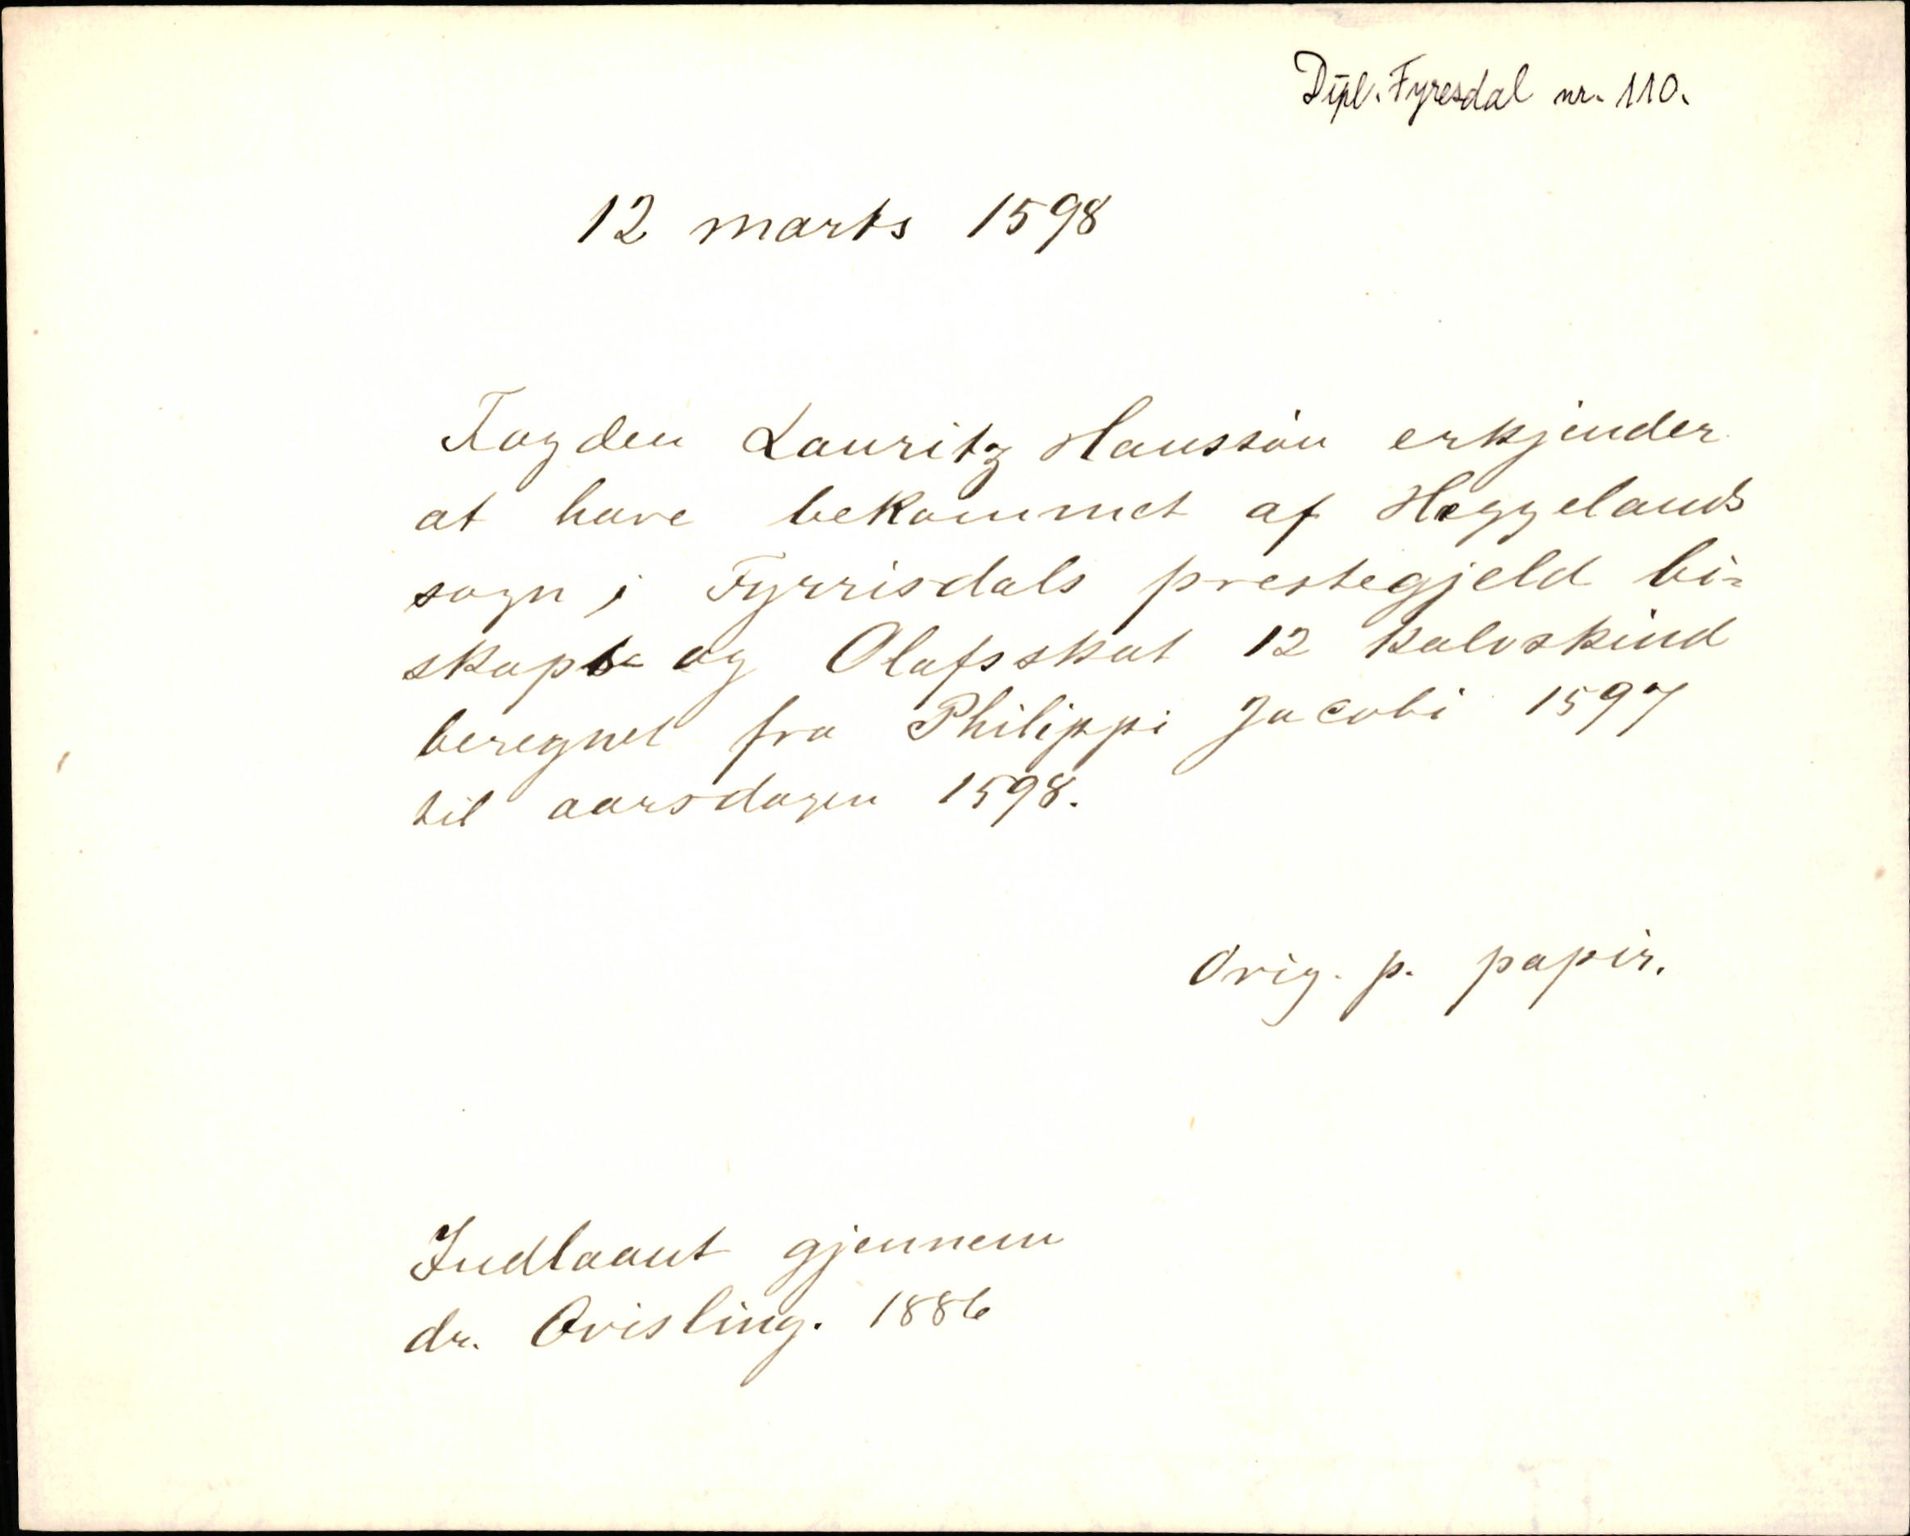 Dipl. Fyresdal nr. 110.
12 marts 1598
Fogden Lauritz Hanssön erkjender
at have bekommet af Heggelands
sogn i Fyrrisdals prestegjeld bi=
skaps- og Olafsskat 12 kalvskind
beregnet fra Philippi Jacobi 1597
til aarsdagen 1598.
Orig. p. papir.
Indlaant gjennem
dr. Qvisling. 1886